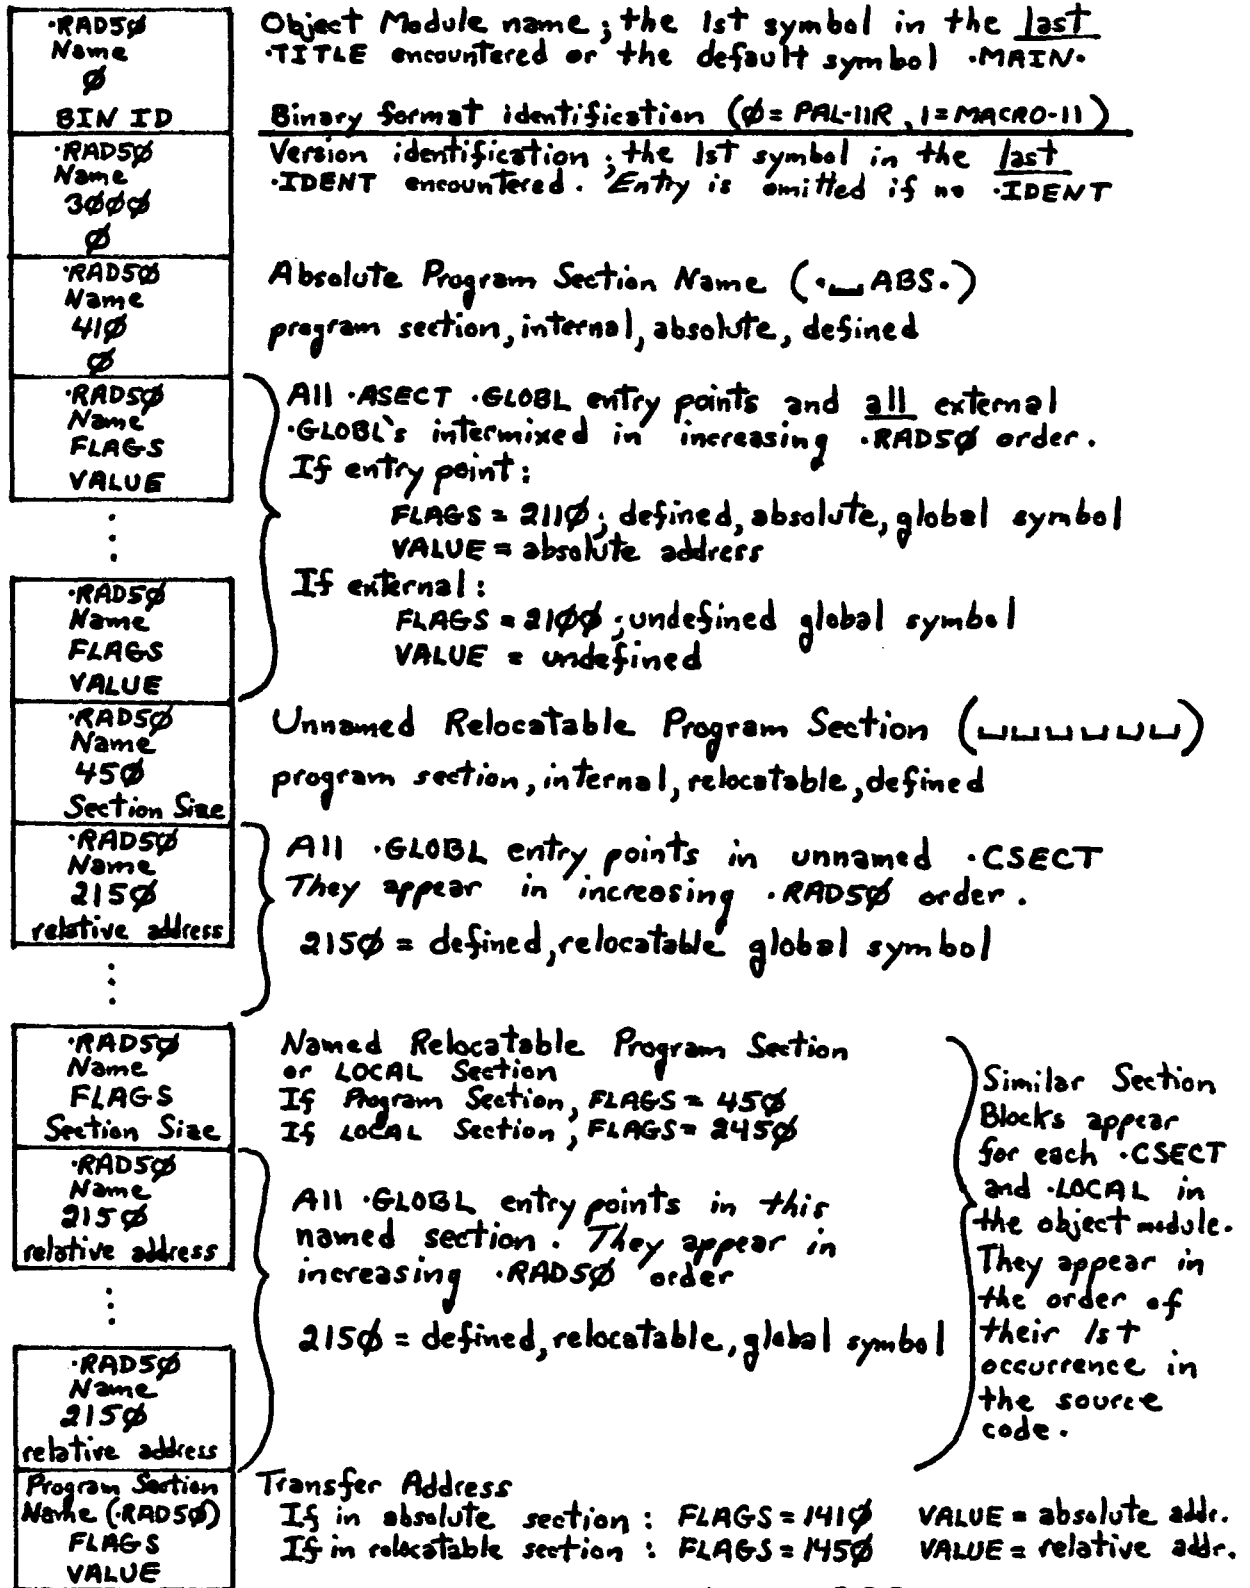 .RAD5Ø
Name
Ø
BIN ID
Object Module name; the 1st symbol in the last
.TITLE encountered or the default symbol .MAIN.
Binary format identification (Ø = PAL-11R, 1 = MACRO-11)
.RAD5Ø
Name
3ØØØ
Ø
Version identification; the 1st symbol in the last
.IDENT encountered. Entry is omitted if no .IDENT
.RAD5Ø
Name
41Ø
Ø
Absolute Program Section Name (.␣ABS.)
program section, internal, absolute, defined
.RAD5Ø
Name
FLAGS
VALUE
.RAD5Ø
Name
FLAGS
VALUE
All .ASECT .GLOBL entry points and all external
.GLOBL's intermixed in increasing .RAD5Ø order.
If entry point:
FLAGS = 211Ø; defined, absolute, global symbol
VALUE = absolute address
If external:
FLAGS = 21ØØ; undefined global symbol
VALUE = undefined
.RAD5Ø
Name
45Ø
Section Size
Unnamed Relocatable Program Section (␣␣␣␣␣␣)
program section, internal, relocatable, defined
.RAD5Ø
Name
215Ø
relative address
All .GLOBL entry points in unnamed .CSECT
They appear in increasing .RAD5Ø order.
215Ø = defined, relocatable global symbol
.RAD5Ø
Name
FLAGS
Section Size
Named Relocatable Program Section
or LOCAL Section
If Program Section, FLAGS = 45Ø
If LOCAL Section, FLAGS = 245Ø
.RAD5Ø
Name
215Ø
relative address
.RAD5Ø
Name
215Ø
relative address
All .GLOBL entry points in this
named section. They appear in
increasing .RAD5Ø order
215Ø = defined, relocatable, global symbol
Similar Section
Blocks appear
for each .CSECT
and .LOCAL in
the object module.
They appear in
the order of
their 1st
occurrence in
the source
code.
Program Section
Name (.RAD5Ø)
FLAGS
VALUE
Transfer Address
If in absolute section: FLAGS = 141Ø VALUE = absolute addr.
If in relocatable section: FLAGS = 145Ø VALUE = relative addr.